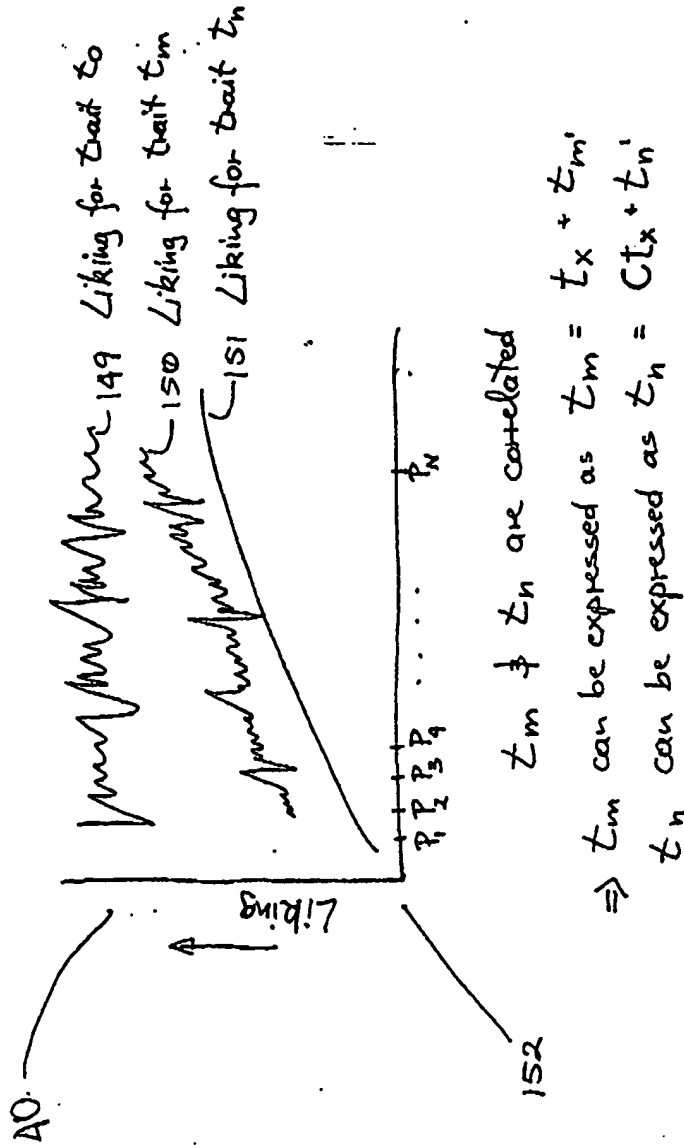 40.
149 Liking for trait to
150 Liking for trait tm
151 Liking for trait tn
Liking
P1 P2 P3 P4 . . . . PN
152
tm & tn are correlated
⇒ tm can be expressed as tm = tx + tm'
tn can be expressed as tn = Ctx + tn'